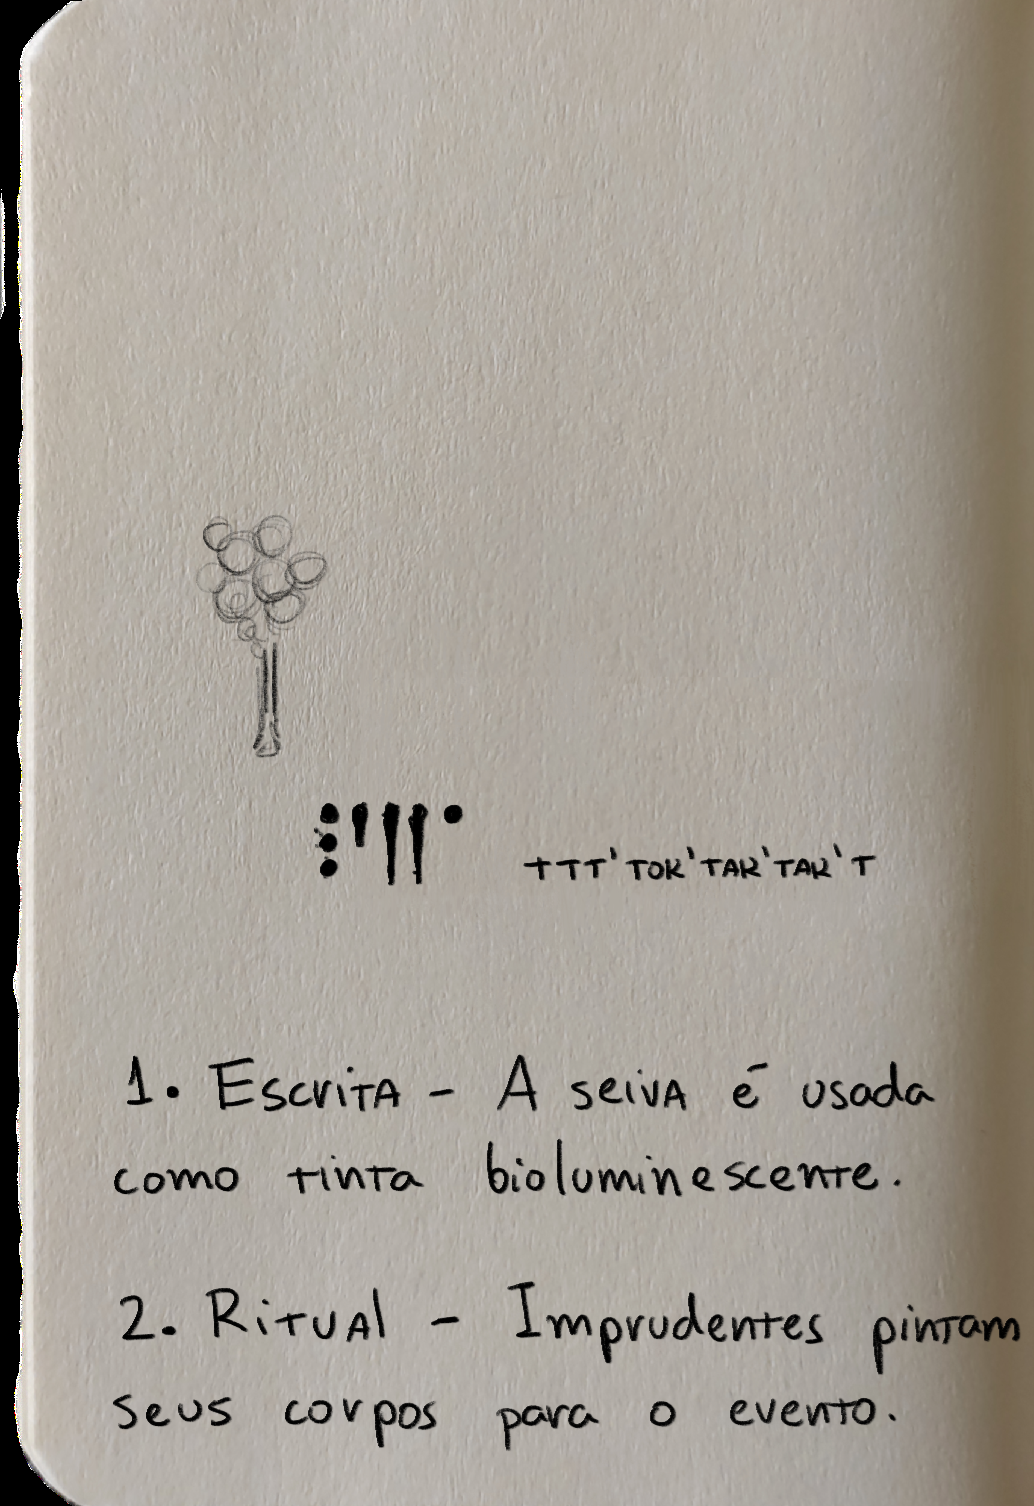 TTT'TOK'TAK'TAK'T
1. Escrita - A seiva é usada
como tinta bioluminescente.
2. Ritual - Imprudentes pintam
seus corpos para o evento.